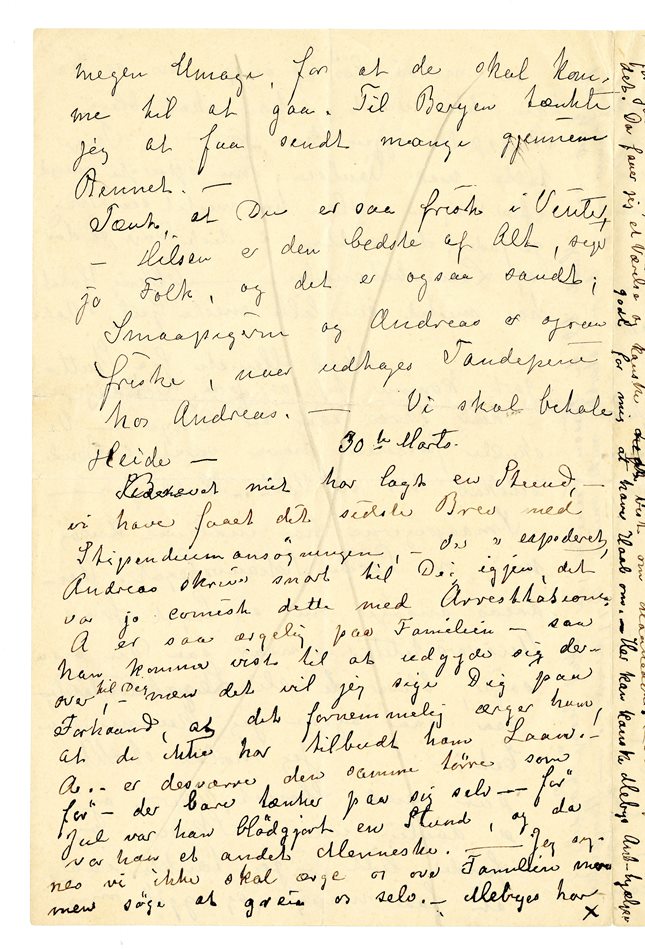 megen Umage, for at de skal kom-
me til at gaa. Til Bergen tænkte
jeg at faa sendt mange gjennem
Bennet. —
Tænk, at Du er saa frisk i Vinter,
— Hilsen er den bedste af Alt, siger
jo Folk, og det er ogsaa sandt;
Smaapigerne og Andreas er ogsaa
friske, nu udtages Tændepine
hos Andreas. — Vi skal betale
Heide — 30te Marts.
Brevet mit har lagt en Stund, —
vi have faaet dit sidste Brev med
Stipendiumansøgningen, — den er expederet,
Andreas skriver snart til Dig igjen, det
var jo comisk dette med Arrestationen.
A er saa ærgelig paa Familien — saa
han kommer vist til at udgyde sig der-
over til Dig, — men det vil jeg sige Dig paa
Forhaand, at det fornemmelig ærger ham,
at de ikke har tilbudt ham Laan. —
A. — er desværre den samme tørre som
før — der bare tænker paa sig selv — før
Jul var han blødgjort en Stund, og da
var han et andet Menneske. — Jeg sy-
nes vi ikke skal ærge os over Familien
men søge at greie os selv. — Mebyes har
x
det. Da faaer jeg et Værelse og kanske
godt for mig at have Haab om. — Her kan kanske Mebys hjælpe